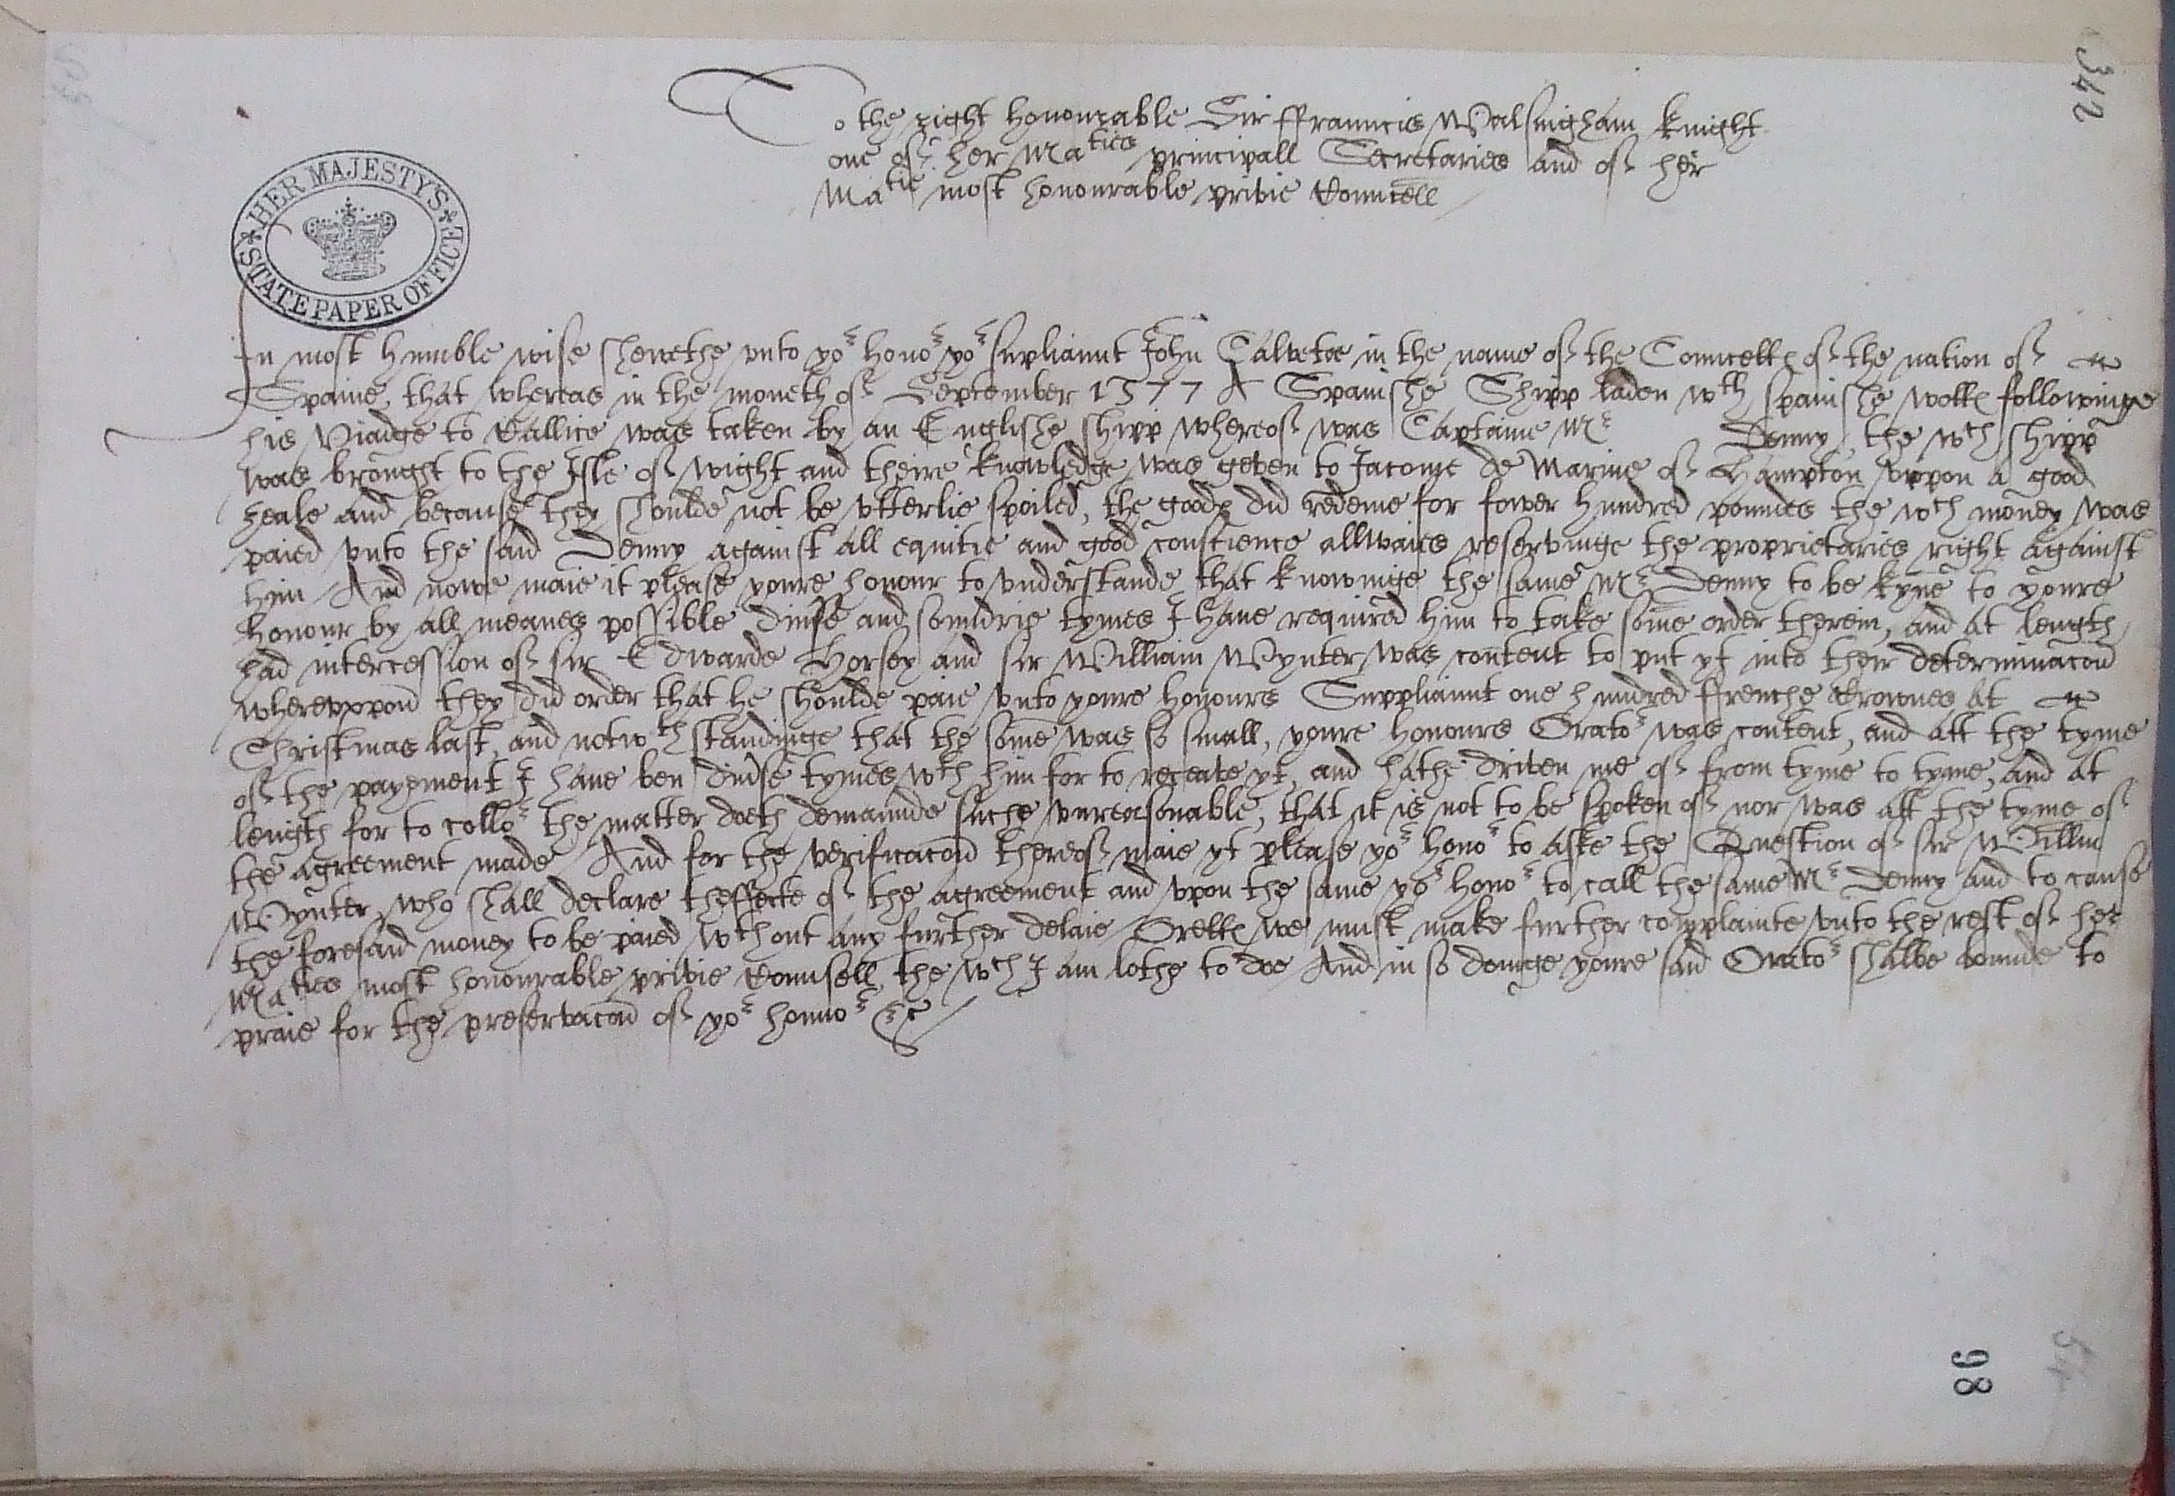 342
To the right honourable Sir ffrauncis Walsingham knight
one of her Maties principall Secretaries and of her
Matie most honourable privie Councell
HER MAJESTY'S STATE PAPER OFFICE
In most humble wise shewethe unto yor honor yor suppliaunt John Calvetoe in the name of the Councell of the nation of
Spaine, that whereas in the moneth of September 1577 A Spanishe Shipp laden wth spanishe wolle followinge
his viadge to Callice was taken by an Englishe shipp whereof was Captaine Mr Denny, the wch shipp
was brought to the Isle of wight and theire knowledge was geven to Jacome de Marine of Hampton uppon a good
zeale and because they shoulde not be utterlie spoiled, the goods did redeme for fower hundred poundes the wch money was
paied unto the said Denny against all equitie and good conscience allwaies reservinge the proprietaries right against
him And nowe maie it please youre honour to understande that knowinge the same Mr Denny to be kyne to youre
honour by all meanes possible diverse and soundrie tymes I have required him to take some order therein, and at length
had intercession of sir Edwarde Horsey and sir William Wynter was content to put yt into their determinacion
whereuppon they did order that he shoulde paie unto youre honours Suppliaunt one hundred ffrenche Crownes at
Christmas last, and notwthstandinge that the some was so small, youre honours Orator was content, and att the tyme
of the payement I have ben diverse tymes wth him for to receave yt, and hathe driven me of from tyme to tyme, and at
length for to collor the matter doeth demaunde suche unreasonable, that it is not to be spoken of nor was att the tyme of
the agreement made And for the verificacion thereof maie yt please yor honor to aske the Question of sir Willm
Wynter who shall declare theffecte of the agreement and upon the same yor honor to call the same Mr Denny and to cause
the foresaid money to be paied wthout any further delaie Orells we must make further complainte unto the rest of her
Maties most honourable privie Counsell, the wch I am lothe to doe And in so doinge youre said Orator shalbe bounde to
praie for the preservacion of yor honnor &c
98
54